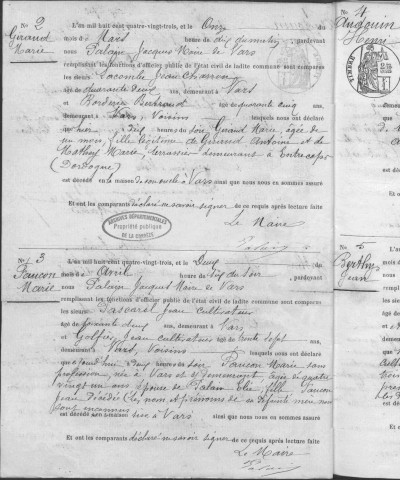 N° 2
Giraud
Marie
L'an mil huit cent quatre-vingt-trois, et le Onze du
mois d Mars heure de dix du matin, pardevant
nous Palain Jacques Maire de Vars
remplissant les fonctions d'officier public de l'état civil de ladite commune sont comparus
les sieurs Lacombe Jean Charron
âgé de quarante deux ans, demeurant à Vars
et Borderie Bertrand âgé de quarante cinq ans,
demeurant à Vars, Voisins lesquels nous ont déclaré
que hier heures du soir, Giraud Marie, âgée de
un mois, fille légitime de Giraud Antoine et de
Marie, terrassier demeurant à
(Dordogne)
est décédé en la maison à Vars ainsi que nous nous en sommes assuré
Et ont les comparants déclaré ne savoir signer de ce requis après lecture faite
Le Maire
ARCHIVES DÉPARTEMENTALES
Propriété publique
DE LA CORRÈZE
N° 3
Faucon
Marie
L'an mil huit cent quatre-vingt-trois, et le Deux du
mois d Avril heure de six du soir, pardevant
nous Palain Jacques Maire de Vars
remplissant les fonctions d'officier public de l'état civil de ladite commune sont comparus
les sieurs Jean Cultivateur
âgé de soixante deux ans, demeurant à Vars
et Golfier Jean Cultivateur âgé de trente sept ans,
demeurant à Vars, Voisins lesquels nous ont déclaré
que aujourd'hui à deux heures du soir, Faucon Marie sans
profession, née à Vars et y demeurant, âgée de quatre
vingt un ans épouse de Palain Elie, fille Faucon
Jean décédé, les nom et prénoms de sa défunte mère nous
sont inconnus
est décédé en sa maison sise à Vars ainsi que nous nous en sommes assuré
Et ont les comparants déclaré ne savoir signer de ce requis après lecture faite
Le Maire
N° 4
Audouin
Henri
TIMBRE
N° 5
Berthy
Jean